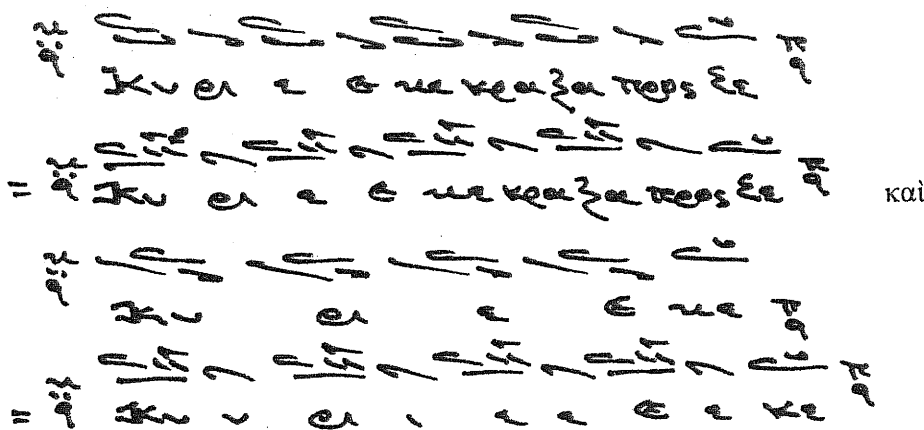 Κυ ρι ε Ε κε κρα ξα προς Σε
= Κυ ρι ε Ε κε κρα ξα προς Σε καὶ
Κυ ρι ε Ε κε
= Κυ υ ρι ι ε ε Ε ε κε